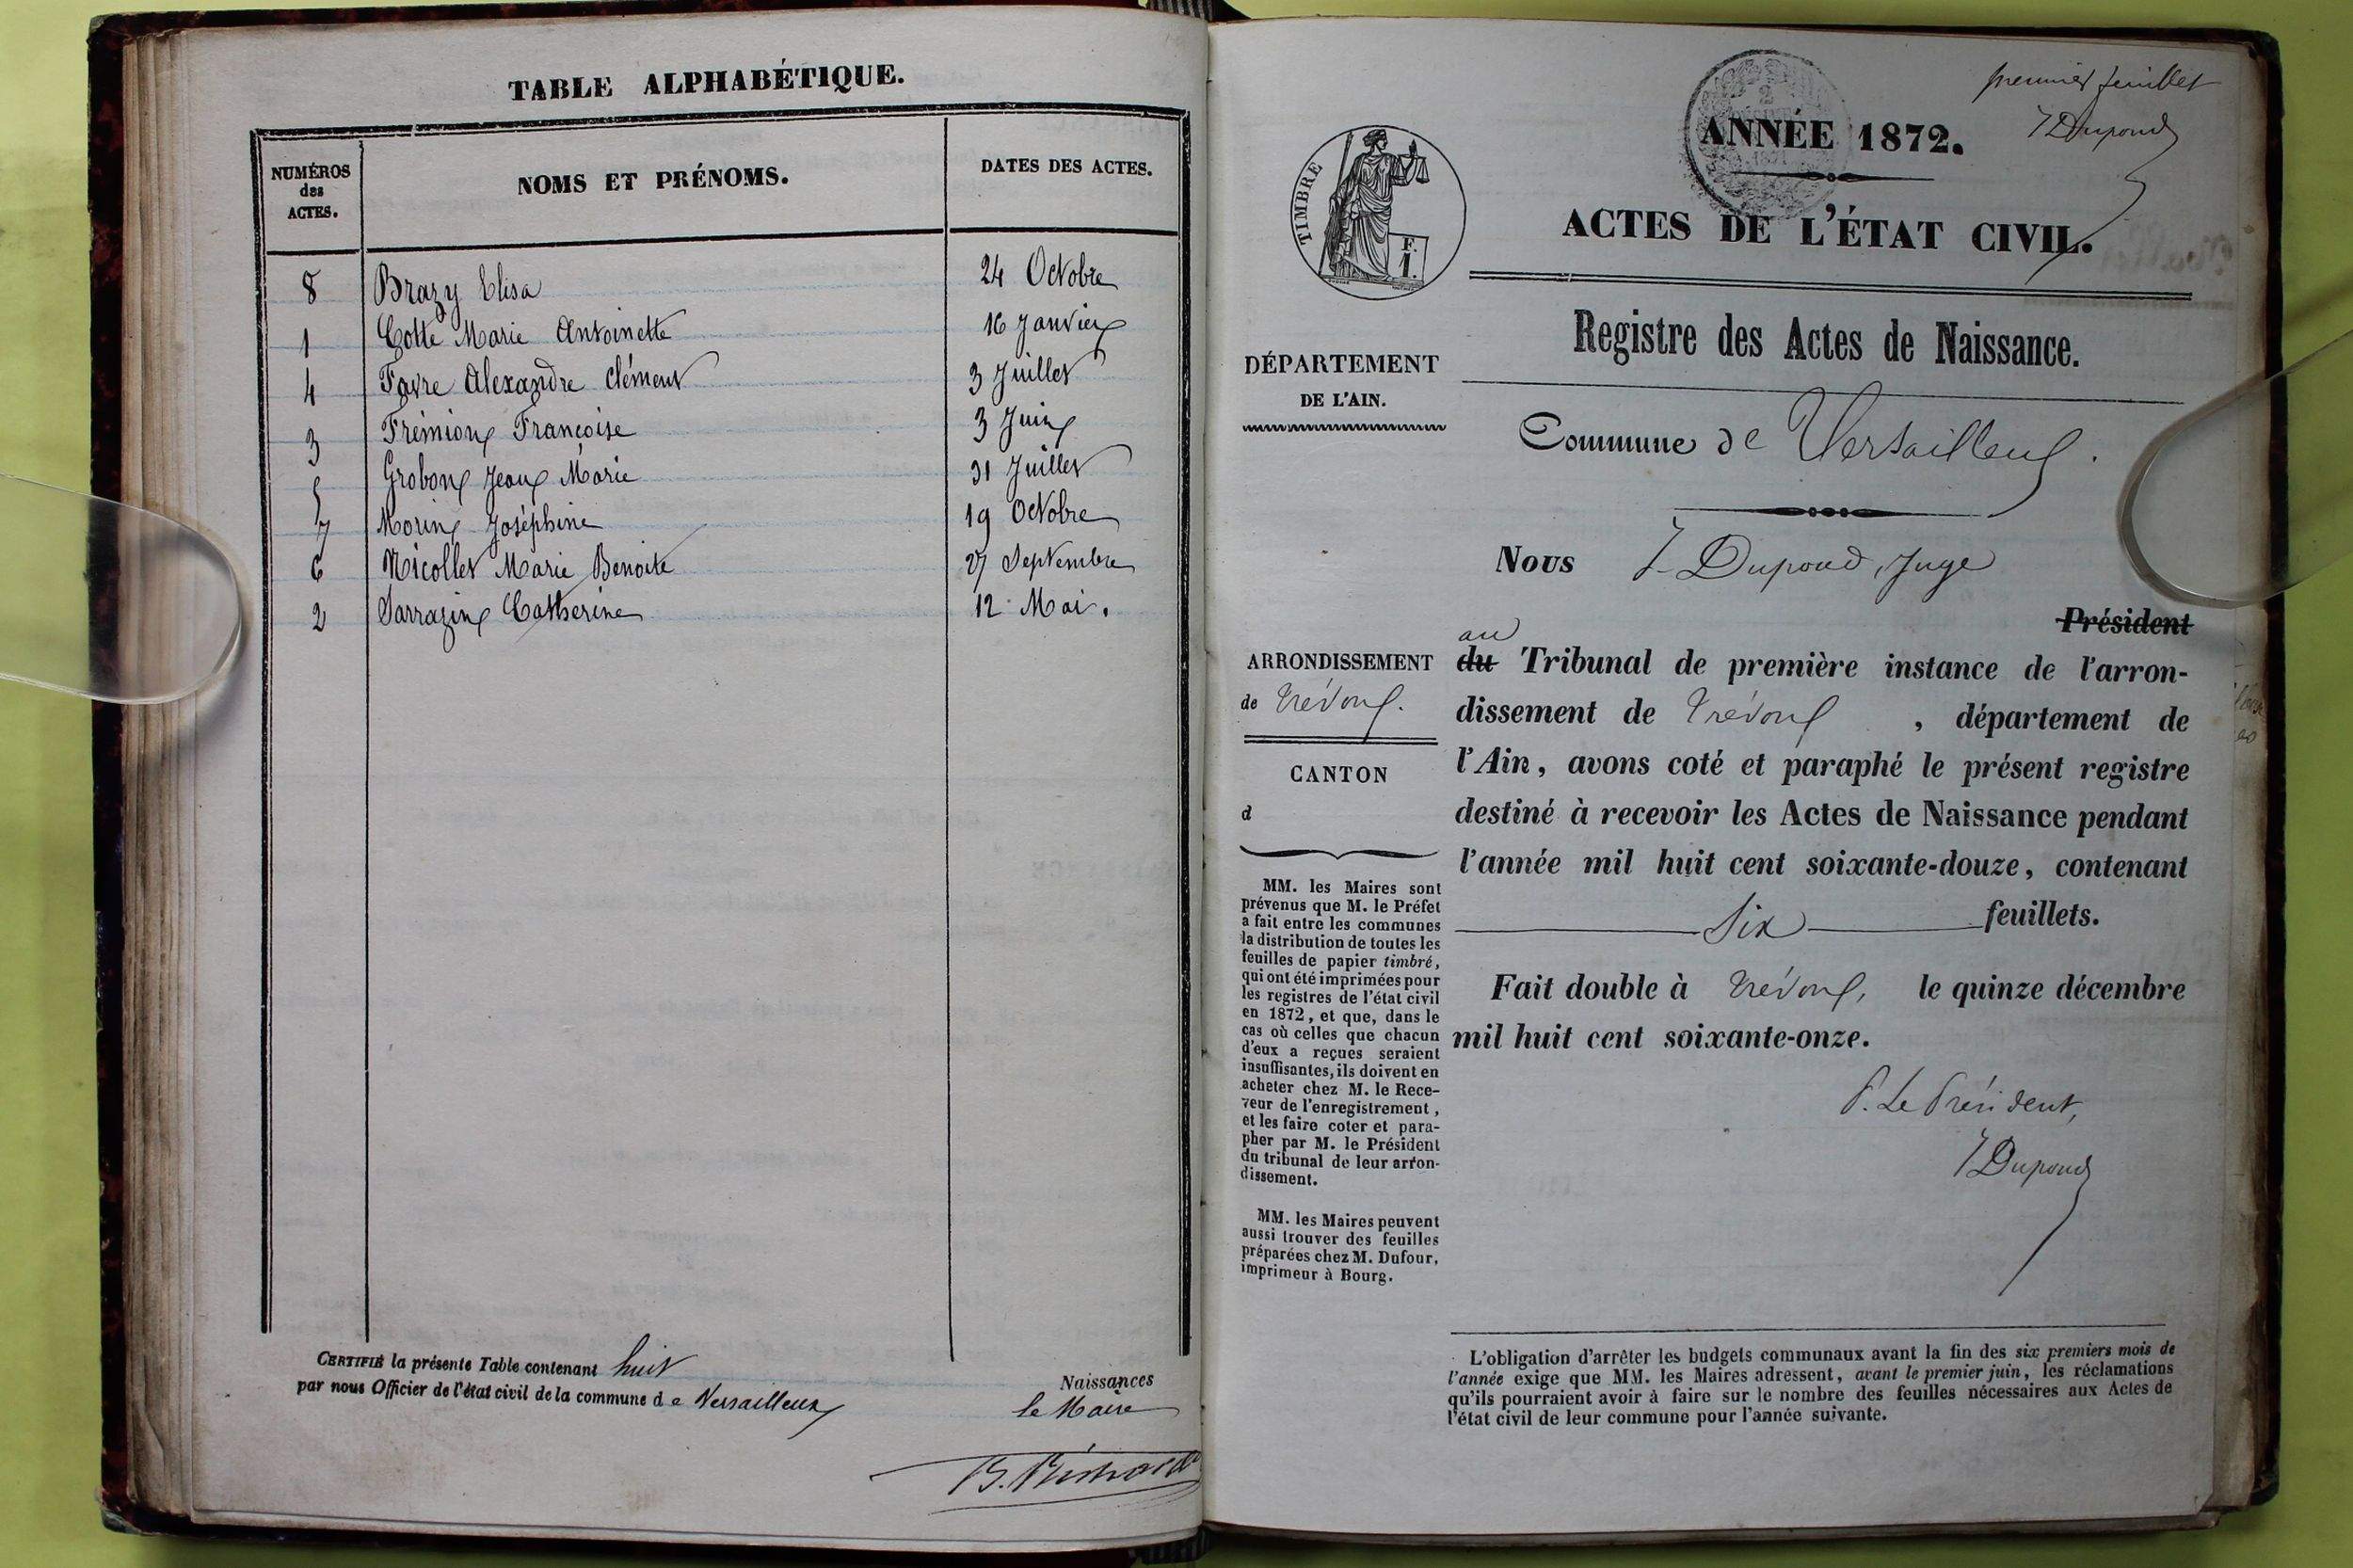 TABLE ALPHABÉTIQUE.
NUMÉROS des ACTES. NOMS ET PRÉNOMS. DATES DES ACTES.
8 Brazy Elisa 24 Octobre
1 Cotte Marie Antoinette 16 Janvier
4 Favre Alexandre Clément 3 Juillet
3 Frémion Françoise 3 Juin
5 Grobon Jean Marie 31 Juillet
7 Morin Joséphine 19 Octobre
6 Nicollet Marie Benoite 27 Septembre
2 Sarrazin Catherine 12 Mai.
CERTIFIÉ la présente Table contenant huit Naissances
par nous Officier de l'état civil de la commune de Versailleux le Maire
premier feuillet
J Dupond
ANNÉE 1872.
ACTES DE L'ÉTAT CIVIL.
TIMBRE
F.
1.
Registre des Actes de Naissance.
DÉPARTEMENT
DE L'AIN.
Commune de Versailleux.
Nous J. Dupond, Juge
Président
au
du Tribunal de première instance de l'arron-
dissement de Trévoux, département de
l'Ain, avons coté et paraphé le présent registre
destiné à recevoir les Actes de Naissance pendant
l'année mil huit cent soixante-douze, contenant
Six feuillets.
Fait double à Trévoux, le quinze décembre
mil huit cent soixante-onze.
P. Le Président,
J Dupond
ARRONDISSEMENT
de Trévoux.
CANTON
d
MM. les Maires sont
prévenus que M. le Préfet
a fait entre les communes
la distribution de toutes les
feuilles de papier timbré,
qui ont été imprimées pour
les registres de l'état civil
en 1872, et que, dans le
cas où celles que chacun
d'eux a reçues seraient
insuffisantes, ils doivent en
acheter chez M. le Rece-
veur de l'enregistrement,
et les faire coter et para-
pher par M. le Président
du tribunal de leur arron-
dissement.
MM. les Maires peuvent
aussi trouver des feuilles
préparées chez M. Dufour,
imprimeur à Bourg.
L'obligation d'arrêter les budgets communaux avant la fin des six premiers mois de
l'année exige que MM. les Maires adressent, avant le premier juin, les réclamations
qu'ils pourraient avoir à faire sur le nombre des feuilles nécessaires aux Actes de
l'état civil de leur commune pour l'année suivante.